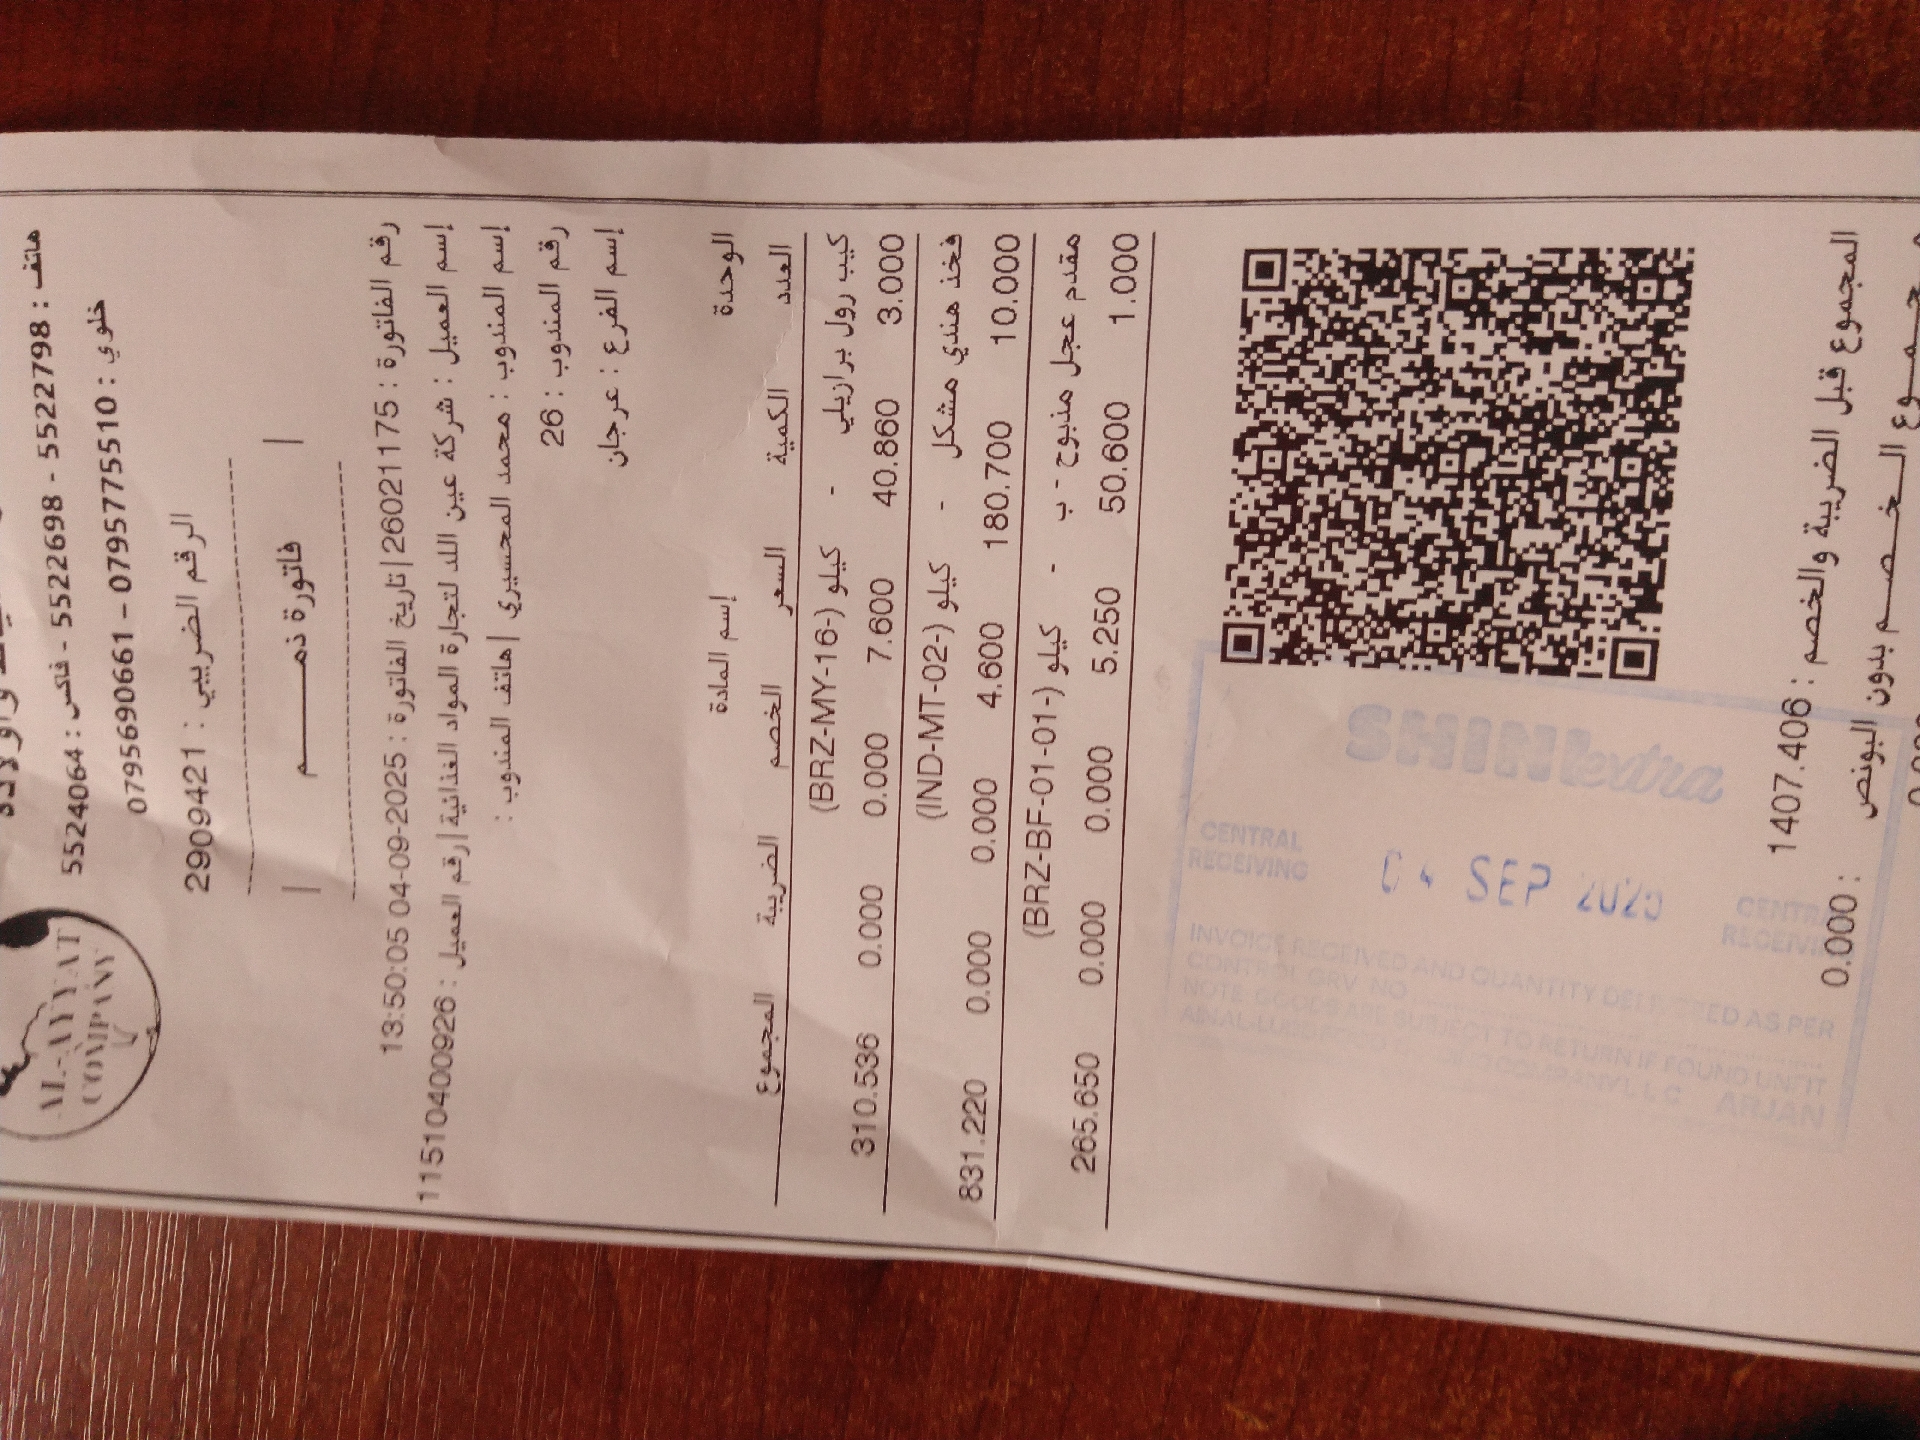 AL-AYYAT
COMPANY
هاتف : 5522798 - 5522698 - فاكس : 5524064
خلوي : 0795775510 - 0795690661
الرقم الضريبي : 2909421
| فاتورة ذمـــــم |
رقم الفاتورة : 26021175 | تاريخ الفاتورة : 2025-09-04 13:50:05
إسم العميل : شركة عين اللد لتجارة المواد الغذائية | رقم العميل : 11510400926
إسم المندوب : محمد المحسيري | هاتف المندوب :
رقم المندوب : 26
إسم الفرع : عرجان
الوحدة إسم المادة
العدد الكمية السعر الخصم الضريبة المجموع
كيب رول برازيلي - كيلو (BRZ-MY-16-)
3.000 40.860 7.600 0.000 0.000 310.536
فخذ هندي مشكل - كيلو (IND-MT-02-)
10.000 180.700 4.600 0.000 0.000 831.220
مقدم عجل مذبوح - ب - كيلو (BRZ-BF-01-01-)
1.000 50.600 5.250 0.000 0.000 265.650
SHINIextra
CENTRAL RECEIVING
04 SEP 2025
CENTRAL RECEIVING
INVOICE RECEIVED AND QUANTITY DELIVERED AS PER
CONTROL GRV NO
NOTE GOODS ARE SUBJECT TO RETURN IF FOUND UNFIT
COMPANY L.L.C ARJAN
المجموع قبل الضريبة والخصم : 1407.406
مجمـــوع الـخـصــم بدون البونص : 0.000